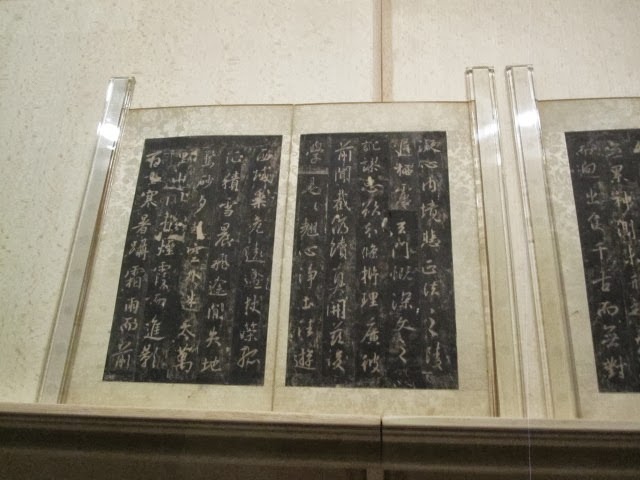 累神測未形
迥出隻千古而無對
凝心內境悲正法之陵
遲栖慮玄門慨深文之
訛謬思欲分條析理廣彼
前聞截偽續真開茲後
學是以翹心淨土法遊
西域乘危遠邁杖策孤
征積雪晨飛途閒失地
驚砂夕起空外迷天萬
里山川撥煙霞而進影
百重寒暑躡霜雨而前